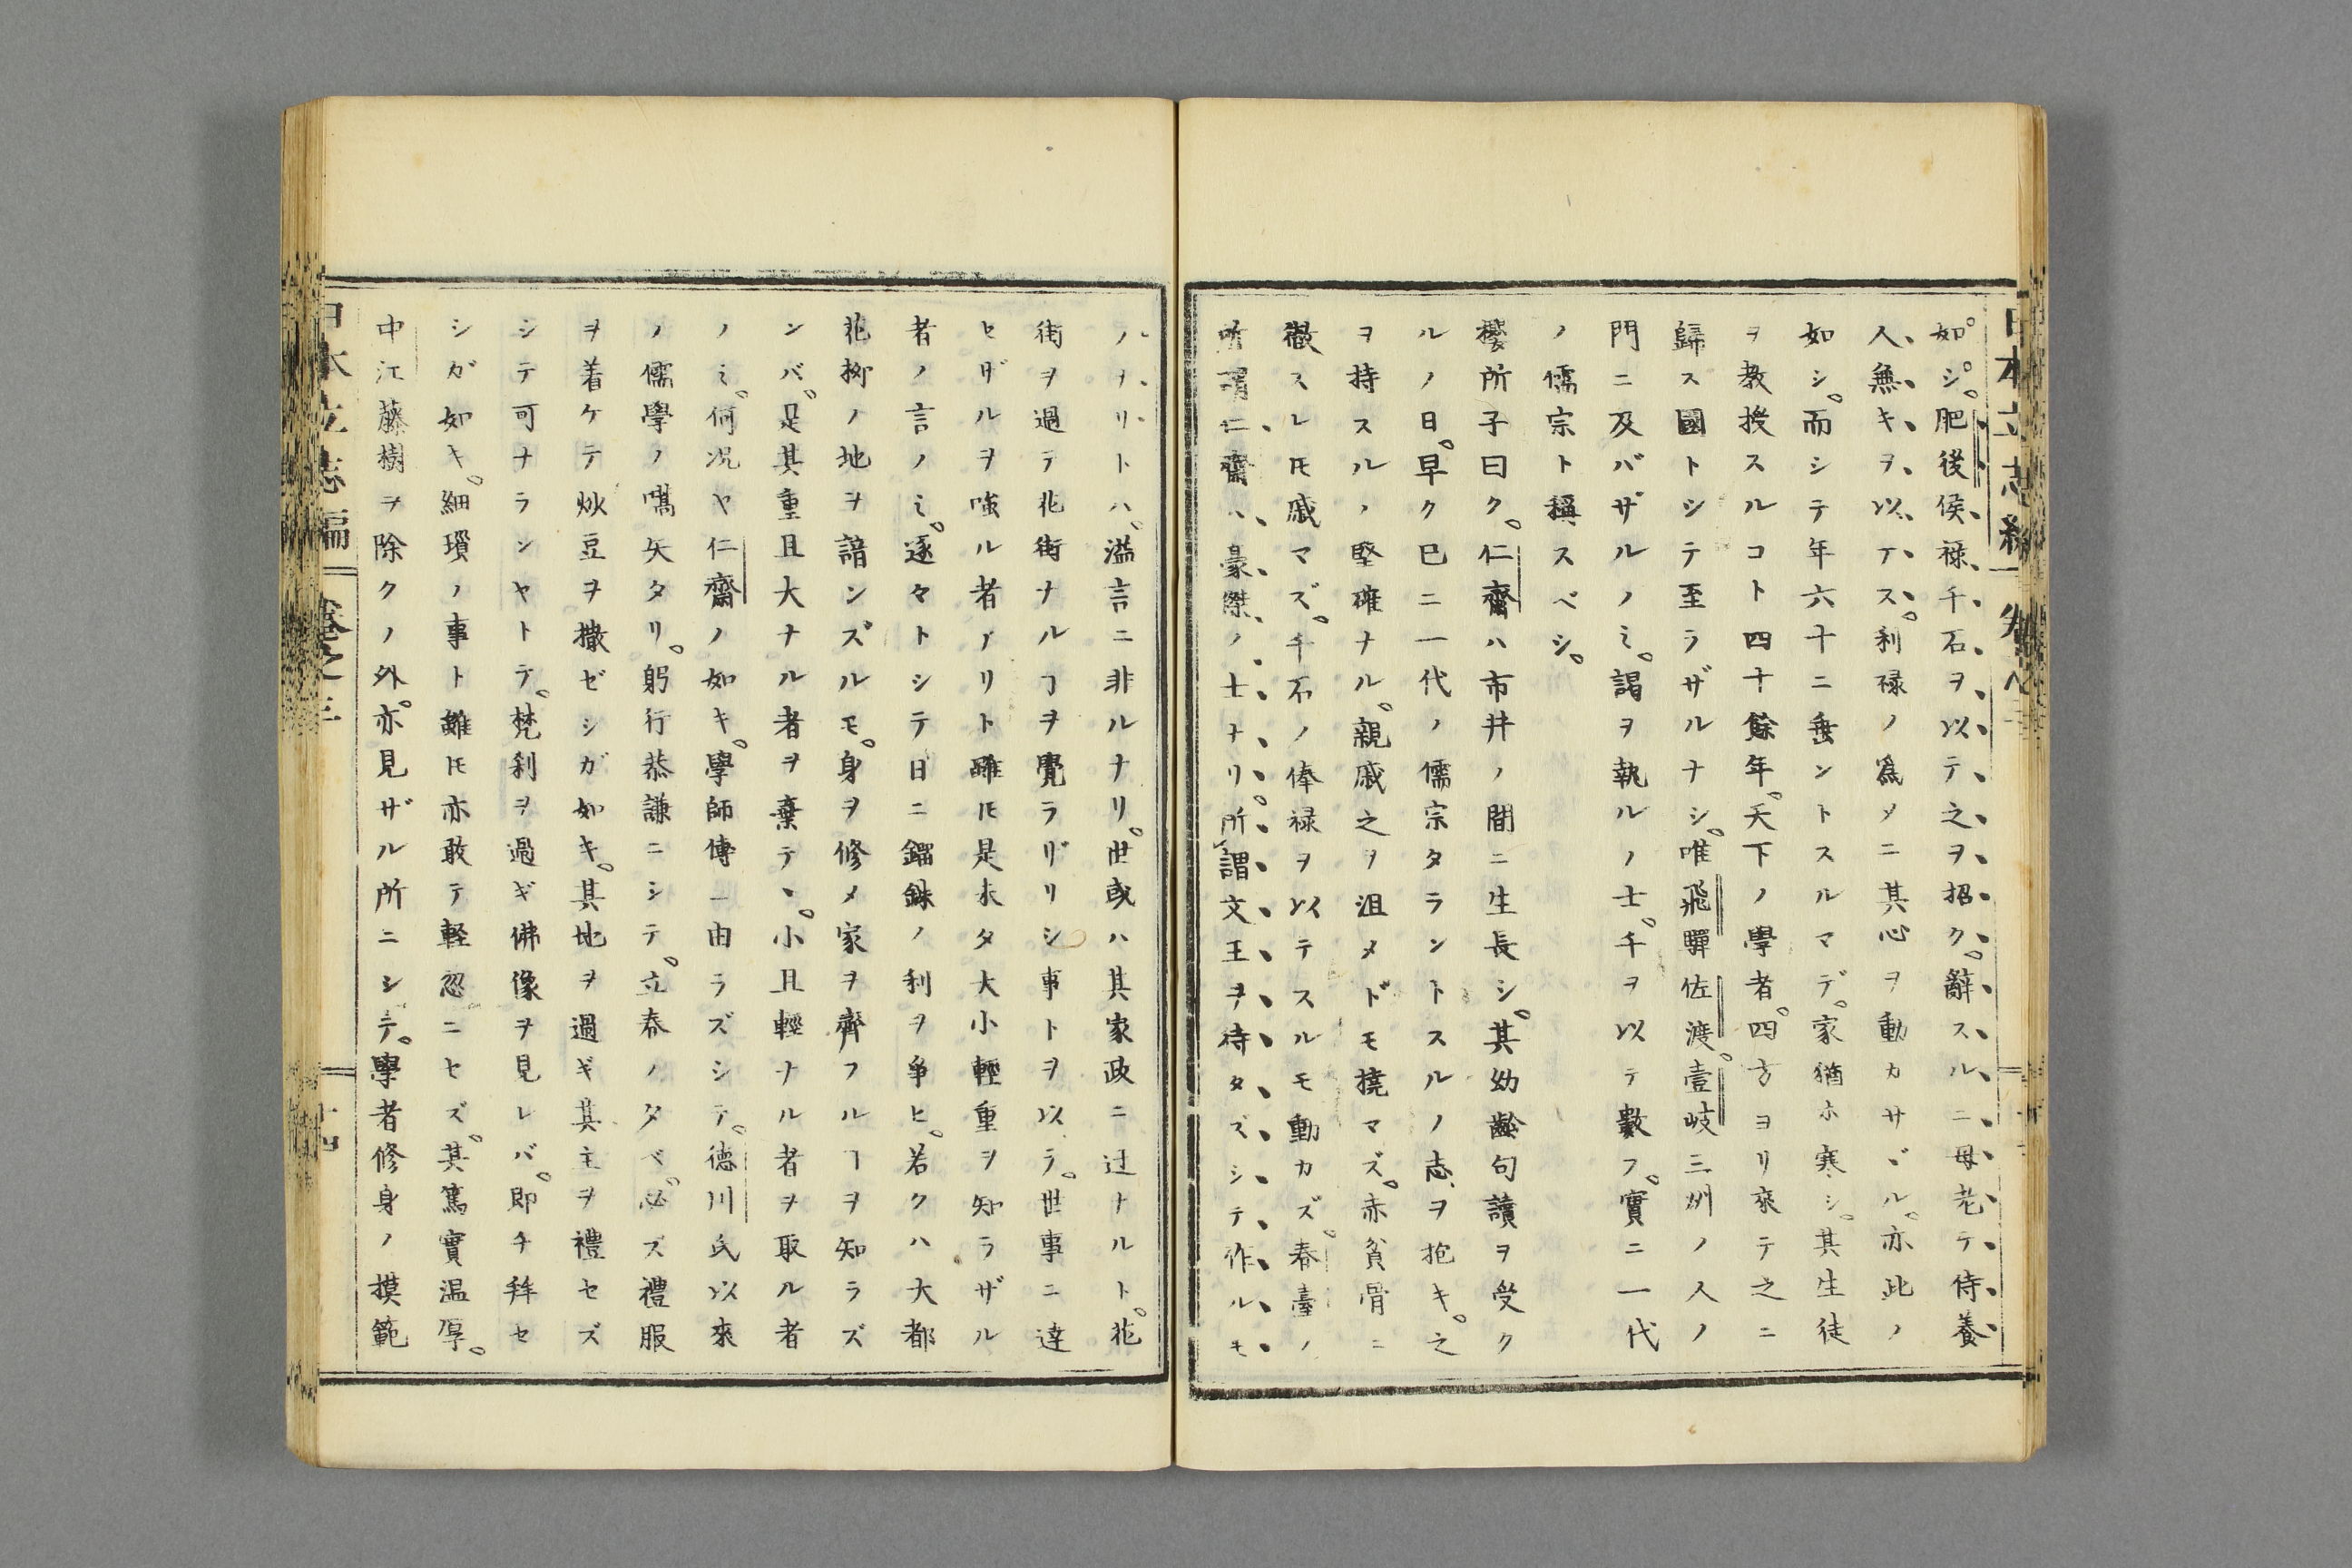 如シ。肥後侯禄千石ヲ以テ之ヲ招ク。辭スルニ母老テ侍養
人無キヲ以テス。利禄ノ爲メニ其心ヲ動カサヾル。亦此ノ
如シ。而シテ年六十ニ垂ントスルマデ。家猶ホ寒シ。其生徒
ヲ教授スルコト四十餘年。天下ノ學者。四方ヨリ來テ之ニ
歸ス國トシテ至ラザルナシ。唯飛驒佐渡。壹岐三州ノ人ノ
門ニ及バザルノミ。謁ヲ執ルノ士。千ヲ以テ數フ。實ニ一代
ノ儒宗ト稱スベシ。
櫻所子曰ク。仁齋ハ市井ノ間ニ生長シ。其幼齡句讀ヲ受ク
ルノ日。早ク已ニ一代ノ儒宗タラントスルノ志ヲ抱キ。之
ヲ持スルノ堅確ナル。親戚之ヲ沮メドモ撓マズ。赤貧骨ニ
徹スレ𪜈戚マズ。千石ノ俸禄ヲ以テスルモ動カズ。春臺ノ
所謂仁齋ハ豪傑ノ士ナリ。所謂文王ヲ待タズシテ作ルモ
ノナリトハ。溢言ニ非ルナリ。世或ハ其家政ニ迂ナルト。花
街ヲ過テ花街ナルヿヲ覺ラザリシ事トヲ以テ。世事ニ達
セザルヲ嗤ル者アリト雖𪜈是未タ大小輕重ヲ知ラザル
者ノ言ノミ。逐々トシテ日ニ錙銖ノ利ヲ爭ヒ。若クハ大都
花柳ノ地ヲ諳ンズルモ。身ヲ修メ家ヲ齊フルヿヲ知ラズ
ンバ。是其重且大ナル者ヲ棄テヽ。小且輕ナル者ヲ取ル者
ノミ。何况ヤ仁齋ノ如キ。學師傳ニ由ラズシテ。德川氏以來
ノ儒學ノ嚆矢タリ。躬行恭謙ニシテ。立春ノタベ。必ズ禮服
ヲ着ケテ炒豆ヲ撒ゼシガ如キ。其地ヲ過ギ其主ヲ禮セズ
シテ可ナランヤトテ。梵利ヲ過ギ佛像ヲ見レバ。即チ拜セ
シガ如キ。細瑣ノ事ト雖𪜈亦敢テ軽忽ニセズ。其篤實温厚。
中江藤樹ヲ除クノ外。亦見ザル所ニシテ。學者修身ノ摸範
日本立志編 卷之三 十四